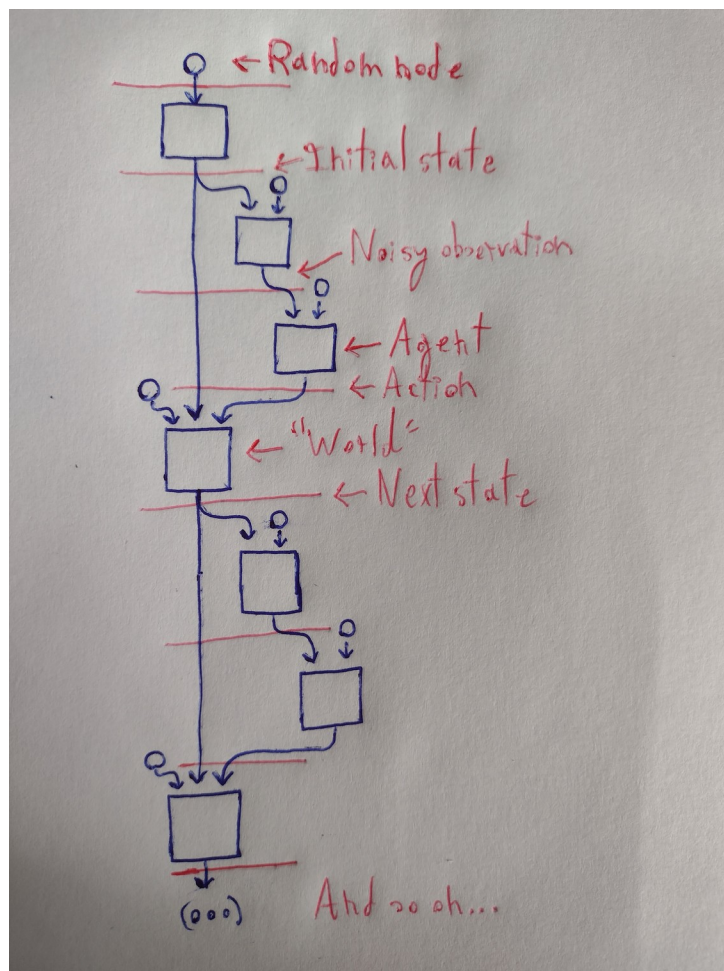 ← Random node
← Initial state
Noisy observation
← Agent
← Action
← "World"
← Next state
(ooo)
And so on...